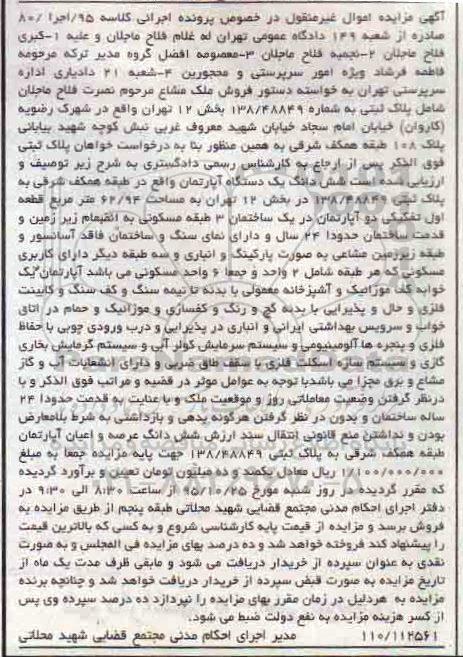 آگهی مزایده اموال غیرمنقول در خصوص پرونده اجرائی کلاسه ۹۵/اجرا /۸۰
صادره از شعبه ۱۴۹ دادگاه عمومی تهران له غلام فلاح ماجلان و علیه ۱-کبری
فلاح ماجلان ۲-نجمیه فلاح ماجلان ۳-معصومه افضل گروه مدیر ترکه مرحومه
فاطمه فرشاد ویژه امور سرپرستی و محجورین ۴-شعبه ۲۱ دادیاری اداره
سرپرستی تهران به خواسته دستور فروش ملک مشاع مرحوم نصرت فلاح ماجلان
شامل پلاک ثبتی به شماره ۱۳۸/۴۸۸۴۹ بخش ۱۲ تهران واقع در شهرک رضویه
(کاروان) خیابان امام سجاد خیابان شهید معروف غربی نبش کوچه شهید بیابانی
پلاک ۱۰۸ طبقه همکف شرقی به همین منظور بنا به درخواست خواهان پلاک ثبتی
فوق الذکر پس از ارجاع به کارشناس رسمی دادگستری به شرح زیر توصیف و
ارزیابی شده است شش دانگ یک دستگاه آپارتمان واقع در طبقه همکف شرقی به
پلاک ثبتی ۱۳۸/۴۸۸۴۹ در بخش ۱۲ تهران به مساحت ۶۲/۹۴ متر مربع قطعه
اول تفکیکی دو آپارتمان در یک ساختمان ۳ طبقه مسکونی به انضمام زیر زمین و
قدمت ساختمان حدودا ۲۴ سال و دارای نمای سنگ و ساختمان فاقد آسانسور و
طبقه زیرزمین مشاعی به صورت پارکینگ و انباری و سه طبقه دیگر دارای کاربری
مسکونی که هر طبقه شامل ۲ واحد و جمعا ۶ واحد مسکونی می باشد آپارتمان یک
خوابه کف موزائیک و آشپزخانه معمولی با بدنه تا نیمه سنگ و کف سنگ و کابینت
فلزی و حال و پذیرایی با بدنه گچ و رنگ و کفسازی و موزائیک و حمام در اتاق
خواب و سرویس بهداشتی ایرانی و انباری در پذیرایی و درب ورودی چوبی با حفاظ
فلزی و پنجره ها آلومینیومی و سیستم سرمایش کولر آبی و سیستم گرمایش بخاری
گازی و سیستم سازه اسکلت فلزی با سقف طاق ضربی و دارای انشعابات آب و گاز
مشاع و برق مجزا می باشدبا توجه به عوامل موثر در قضیه و مراتب فوق الذکر و با
درنظر گرفتن وضعیت معاملاتی روز و موقعیت ملک و با عنایت به قدمت حدودا ۲۴
ساله ساختمان و بدون در نظر گرفتن هرگونه بدهی و بازداشتی به شرط بلامعارض
بودن و نداشتن منع قانونی انتقال سند ارزش شش دانگ عرصه و اعیان آپارتمان
طبقه همکف شرقی به پلاک ثبتی ۱۳۸/۴۸۸۴۹ جهت پایه مزایده جمعا به مبلغ
۱/۱۰۰/۰۰۰/۰۰۰ ریال معادل یکصد و ده میلیون تومان تعیین و برآورد گردیده
که مقرر گردیده در روز شنبه مورخ ۹۵/۱۰/۲۵ ساعت ۸:۳۰ الی ۹:۳۰ در
دفتر اجرای احکام مدنی مجتمع قضایی شهید محلاتی طبقه پنجم از طریق مزایده به
فروش برسد و مزایده از قیمت پایه کارشناسی شروع و به کسی که بالاترین قیمت
را پیشنهاد کند فروخته خواهد شد و ده درصد بهای مزایده فی المجلس و به صورت
نقدی به عنوان سپرده از خریدار دریافت می شود و مابقی ظرف مدت یک ماه از
تاریخ مزایده به صورت قبض سپرده از خریدار دریافت خواهد شد و چنانچه برنده
مزایده به هردلیل در زمان مقرر بهای مزایده را نپردازد ده درصد سپرده وی پس
از کسر هزینه مزایده به نفع دولت ضبط می شود.
۱۱۰/۱۱۲۵۶۱ مدیر اجرای احکام مدنی مجتمع قضایی شهید محلاتی